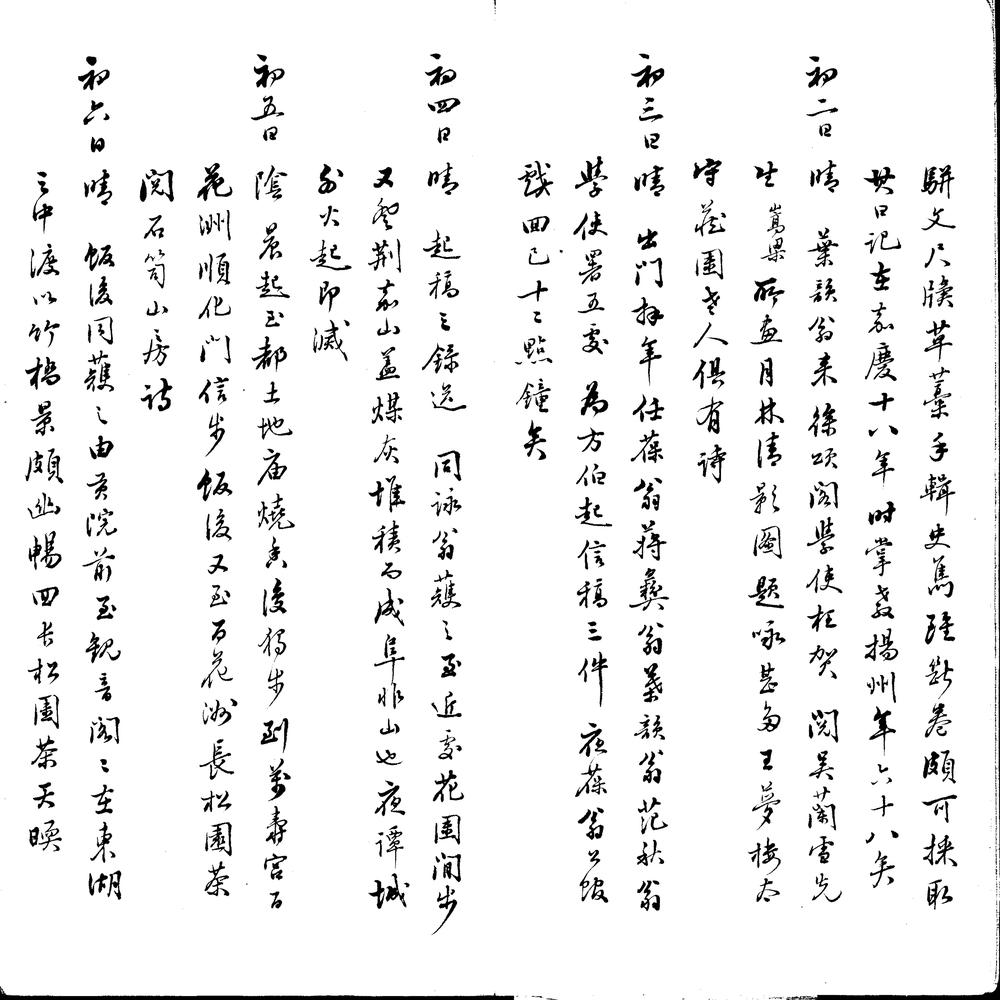 駢文尺牘草藁手輯史雋雖斷卷頗可採取
其日記在嘉慶十八年時掌教揚州年六十八矣
初二日 晴 葉韻翁來徐頌閣學使枉賀 閱吳蘭雪先
生嵩梁所畫月林清影圖題咏甚多王夢樓太
守花圃老人俱有詩
初三日 晴 出門拜年任葆翁蔣彝翁葉韻翁范秋翁
學使署五處 為方伯起信稿三件 夜葆翁公飯
戲回已十二點鐘矣
初四日 晴 起稿之錄送 同詠翁蘐之至近處花園閒步
又登荊嘉山蓋煤灰堆積而成阜非山也夜譚城
外火起即滅
初五日 陰 晨起至都土地庙燒香後獨步到萬壽宮百
花洲順化門信步飯後又至百花洲長松園茶
閱石笥山房詩
初六日 晴 飯後同蘐之由貢院前至觀音閣〻在東湖
之中渡以竹橋景頗幽暢回長松園茶天暖